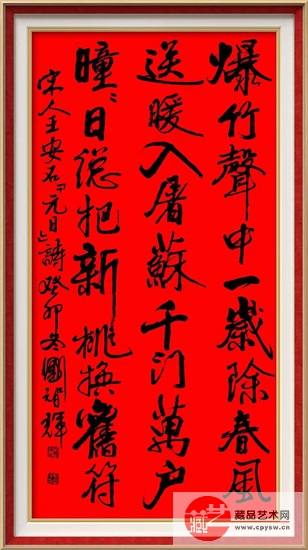 爆竹聲中一歲除春風
送暖入屠蘇千门萬户
曈々日總把新桃換舊符
宋人王安石「元日」詩癸卯冬智輝
藏品艺术网
www.cpysw.cn